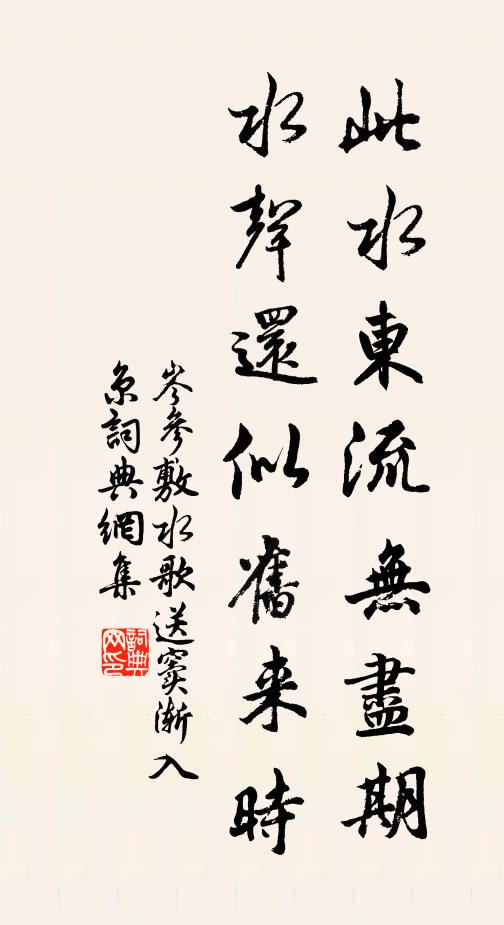 此水東流無盡期
水聲還似舊来時
岑參敷水歌送竇漸入
京詞典網集
詞典網印